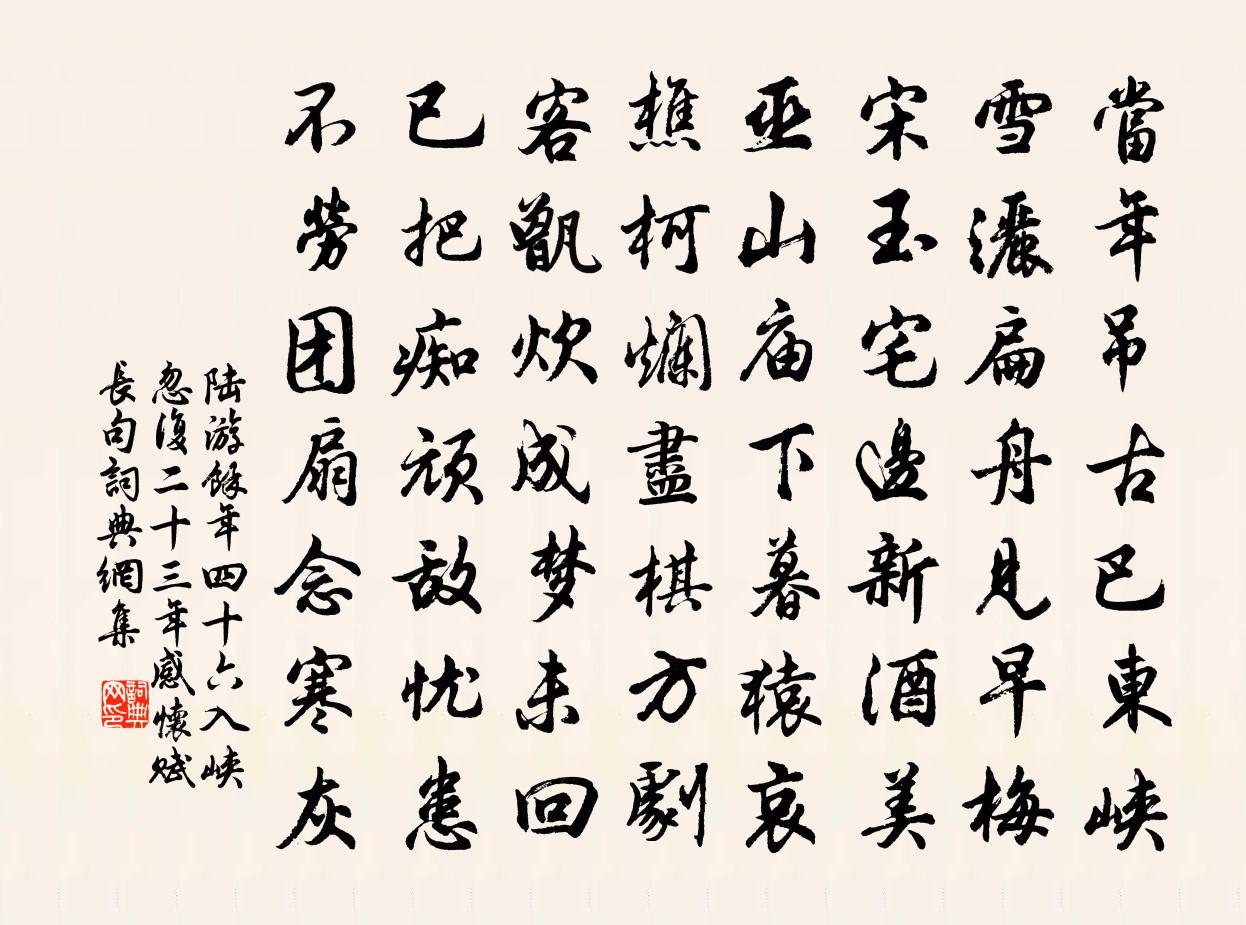 當年吊古巴東峽
雪灑扁舟見早梅
宋玉宅邊新酒美
巫山庙下暮猿哀
樵柯爛盡棋方劇
客甑炊成梦未回
已把痴頑敌忧患
不勞团扇念寒灰
陆游餘年四十六入峽
忽復二十三年感懷賦
長句詞典網集
詞典
网印